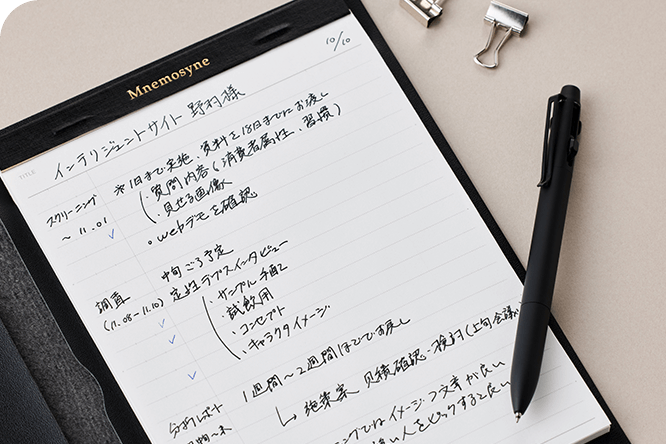 Mnemosyne
10/10
TITLE
インテリジェントサイト 野村様
スクリーニング
~11.01
※1日まで実施、資料を18日までにお渡し
・質問内容(消費者属性、習慣)
・見せる画像
・webデモを確認
調査
(11.08-11.10)
中旬ごろ予定
定性 デプスインタビュー
・サンプル手配
・試飲用
・コンセプト
・キャラクタイメージ
分析レポート
1週間~2週間ほどでお戻し
↳施策案 見積確認・検討(上旬会議
イメージつく文章が良い
人をピックすると良い